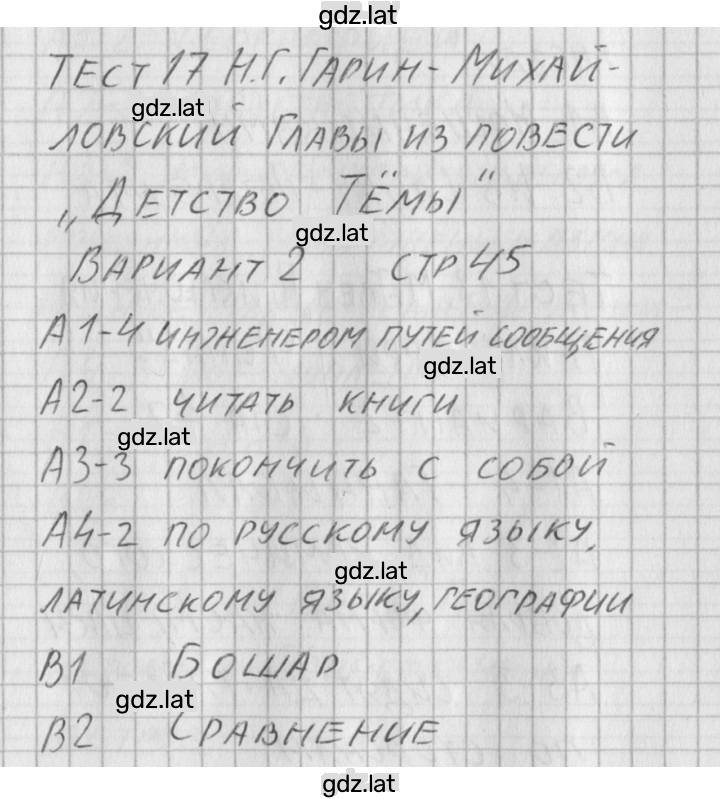 gdz.lat
ТЕСТ 17 Н.Г. ГАРИН-МИХАЙ-
gdz.lat
ЛОВСКИЙ ГЛАВЫ ИЗ ПОВЕСТИ
„ДЕТСТВО ТЁМЫ"
gdz.lat
ВАРИАНТ 2 СТР 45
А1-4 ИНЖЕНЕРОМ ПУТЕЙ СООБЩЕНИЯ
gdz.lat
А2-2 ЧИТАТЬ КНИГИ
gdz.lat
А3-3 ПОКОНЧИТЬ С СОБОЙ
А4-2 ПО РУССКОМУ ЯЗЫКУ,
gdz.lat
ЛАТИНСКОМУ ЯЗЫКУ, ГЕОГРАФИИ
В1 БОШАР
gdz.lat
В2 СРАВНЕНИЕ
gdz.lat